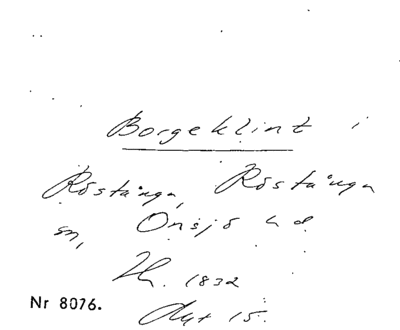 Borgeklint i
Röstånga, Röstånga
sn, Onsjö hd
1832
Nr 8076.
Akt 15.